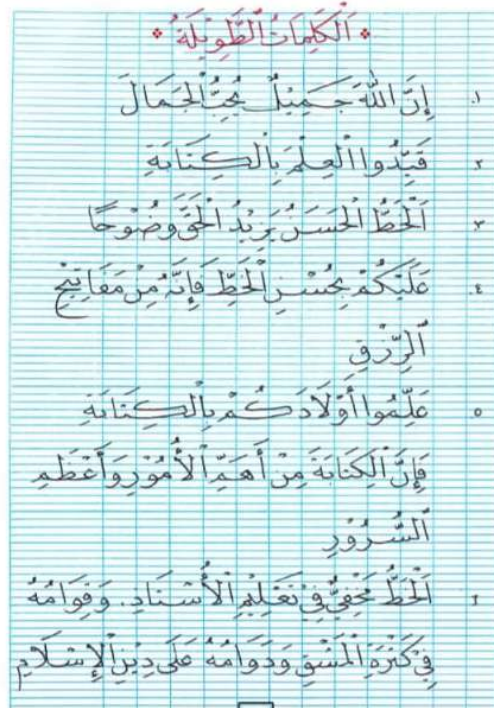 اَلْكَلِمَاتُ الطَّوِيْلَةُ
١. إِنَّ اللهَ جَمِيْلٌ يُحِبُّ الْجَمَالَ
٢. قَيِّدُوا الْعِلْمَ بِالْكِتَابَةِ
٣. اَلْخَطُّ الْحَسَنُ يَزِيْدُ الْحَقَّ وُضُوْحًا
٤. عَلَيْكُمْ بِحُسْنِ الْخَطِّ فَإِنَّهُ مِنْ مَفَاتِيْحِ
الرِّزْقِ
٥. عَلِّمُوا أَوْلَادَكُمْ بِالْكِتَابَةِ
فَإِنَّ الْكِتَابَةَ مِنْ أَهَمِّ الْأُمُوْرِ وَأَعْظَمِ
السُّرُوْرِ
٦. اَلْخَطُّ مَخْفِيٌّ فِيْ تَعْلِيْمِ الْأُسْتَاذِ. وَقِوَامُهُ
فِيْ كَثْرَةِ الْمَشْقِ وَدَوَامُهُ عَلَى دِيْنِ الْإِسْلَامِ